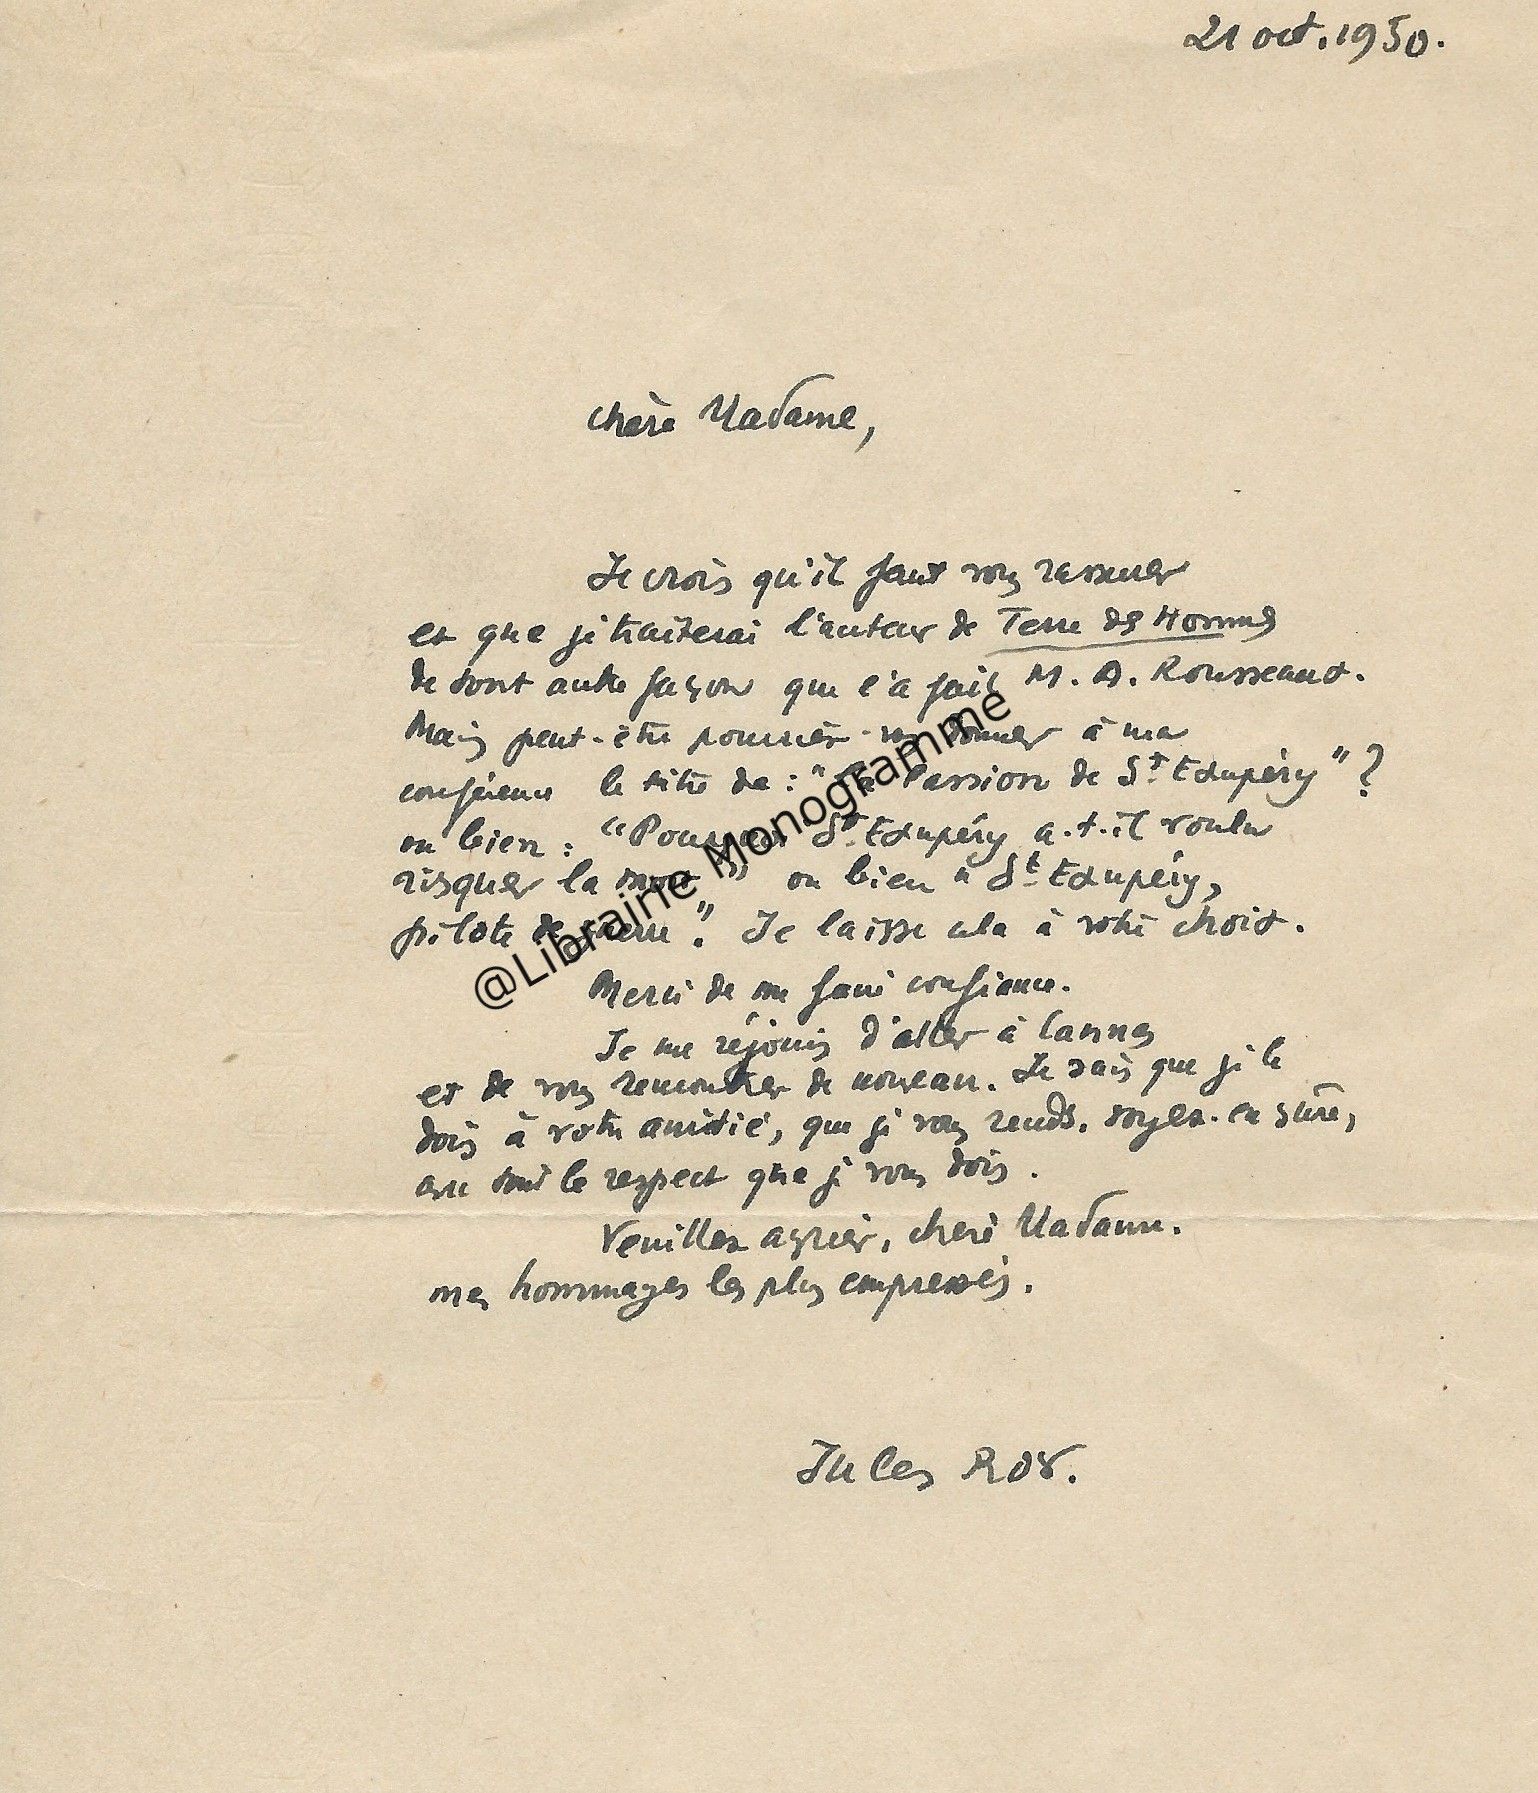 21 oct. 1950.
Chère Madame,
Je crois qu'il faut vous rassurer
et que je traiterai l'auteur de Terre des Hommes
de tout autre façon que l'a fait M. A. Rousseaux.
Mais peut-être pourriez-vous donner à ma
conférence le titre de : "La Passion de St Exupéry" ?
ou bien : "Pourquoi St Exupéry a-t-il voulu
risquer la mort" ou bien "St Exupéry,
pilote de guerre". Je laisse cela à votre choix.
Merci de me faire confiance.
Je me réjouis d'aller à Cannes
et de vous rencontrer de nouveau. Je sais que je le
dois à votre amitié, que je vous rends, soyez-en sûre,
avec tout le respect que je vous dois.
Veuillez agréer, chère Madame,
mes hommages les plus empressés.
Jules Roy.
@Librairie Monogramme